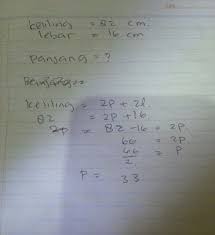 keliling = 82 cm
lebar = 16 cm
panjang = ?
keliling = 2p + 2l
82 = 2p + 16
2p = 82 - 16 = 2p
66 = 2p
66/2 = P
P = 33